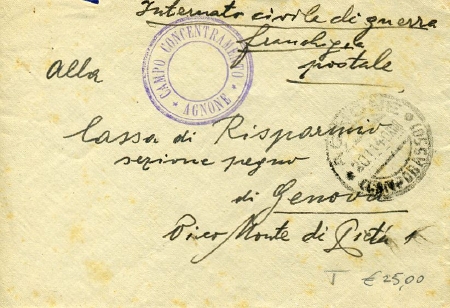 Internato civile di guerra
franchigia
postale
CAMPO CONCENTRAMENTO
* AGNONE *
Alla
Cassa di Risparmio
sezione pegno
di Genova
Vico Monte di Pietà 1
AGNONE
(CAMPOBASSO)
T €25,00